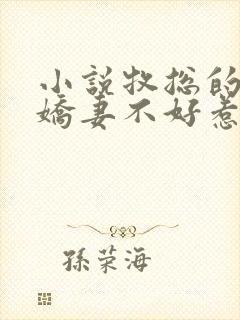 小説牧总的
嬌妻不好惹
孫荣海